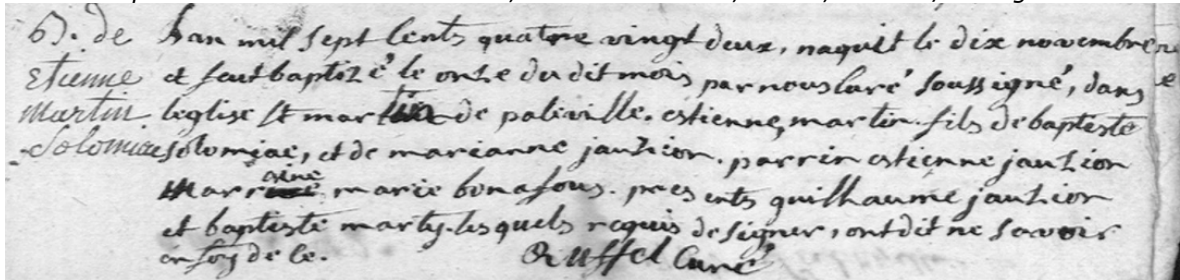 B. de
Etienne
Martin
Solomiac
Lan mil sept cents quatre vingt deux, naquit le dix novembre
et feut baptizé le onze du dit mois par nous curé soussigné, dans
leglise St martin de paleville. estienne martin fils de baptiste
solomiac, et de marianne jauzion. parrin estienne jauzion
marraine marie bonafous. presents guilhaume jauzion
et baptiste marty. lesquels requis de signer, ont dit ne savoir
en foy de ce.
Ruffel Curé